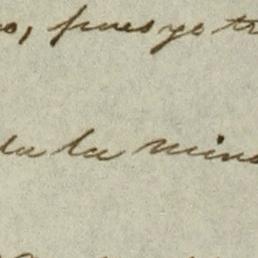 o, pues yo tr
da la mina